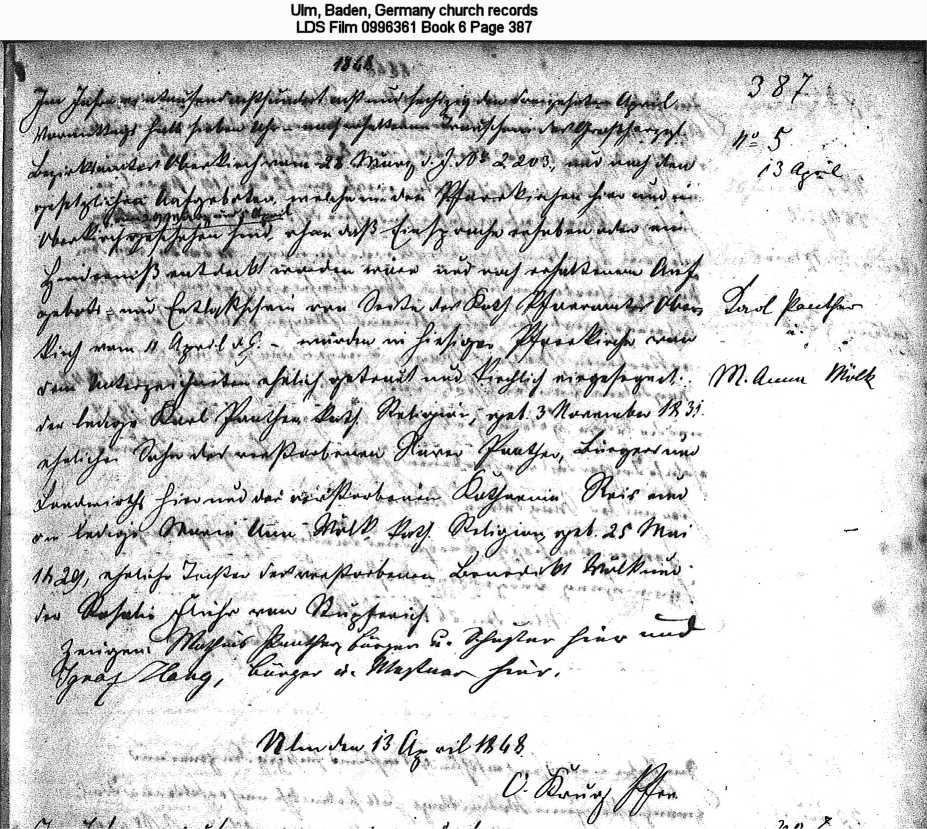 Ulm, Baden, Germany church records
LDS Film 0996361 Book 6 Page 387
1868
387
Im Jahre eintausend achthundert acht und sechszig den dreizehnten April
Vormittags halb sieben Uhr – nach erhaltenem Trauschein des Großherzogl.
Bezirksamtes Oberkirch vom 28 März d. J. No 2203, und nach den
No 5
13 April
gesetzlichen Aufgeboten, welche in den Pfarrkirchen hier und in
April
Oberkirch geschehen sind, ohne daß Einsprache erhoben oder ein
Hinderniß entdeckt worden wäre und nach erhaltenem Auf-
gebots- und Entlaßschein von Seite des Kath. Pfarramtes Ober-
kirch vom 11 April d. J. – wurden in hiesiger Pfarrkirche von
dem Unterzeichneten ehelich getraut und kirchlich eingesegnet:
Karl Panther
u.
M. Anna Mölk
der ledige Karl Panther kath. Religion, geb. 3 November 1831
ehelicher Sohn des verstorbenen Xaver Panther, Bürgers und
Landwirths hier und der verstorbenen Katharina Reis und
die ledige Maria Anna Mölk kath. Religion, geb. 25 Mai
1829, eheliche Tochter des verstorbenen Benedikt Mölk und
der Rosalia von Stupferich.
Zeugen: Mathias Panther, Bürger u. Schuster hier und
Ignaz Haug, Bürger u. Meßner hier.
Ulm den 13 April 1868
Pfr.